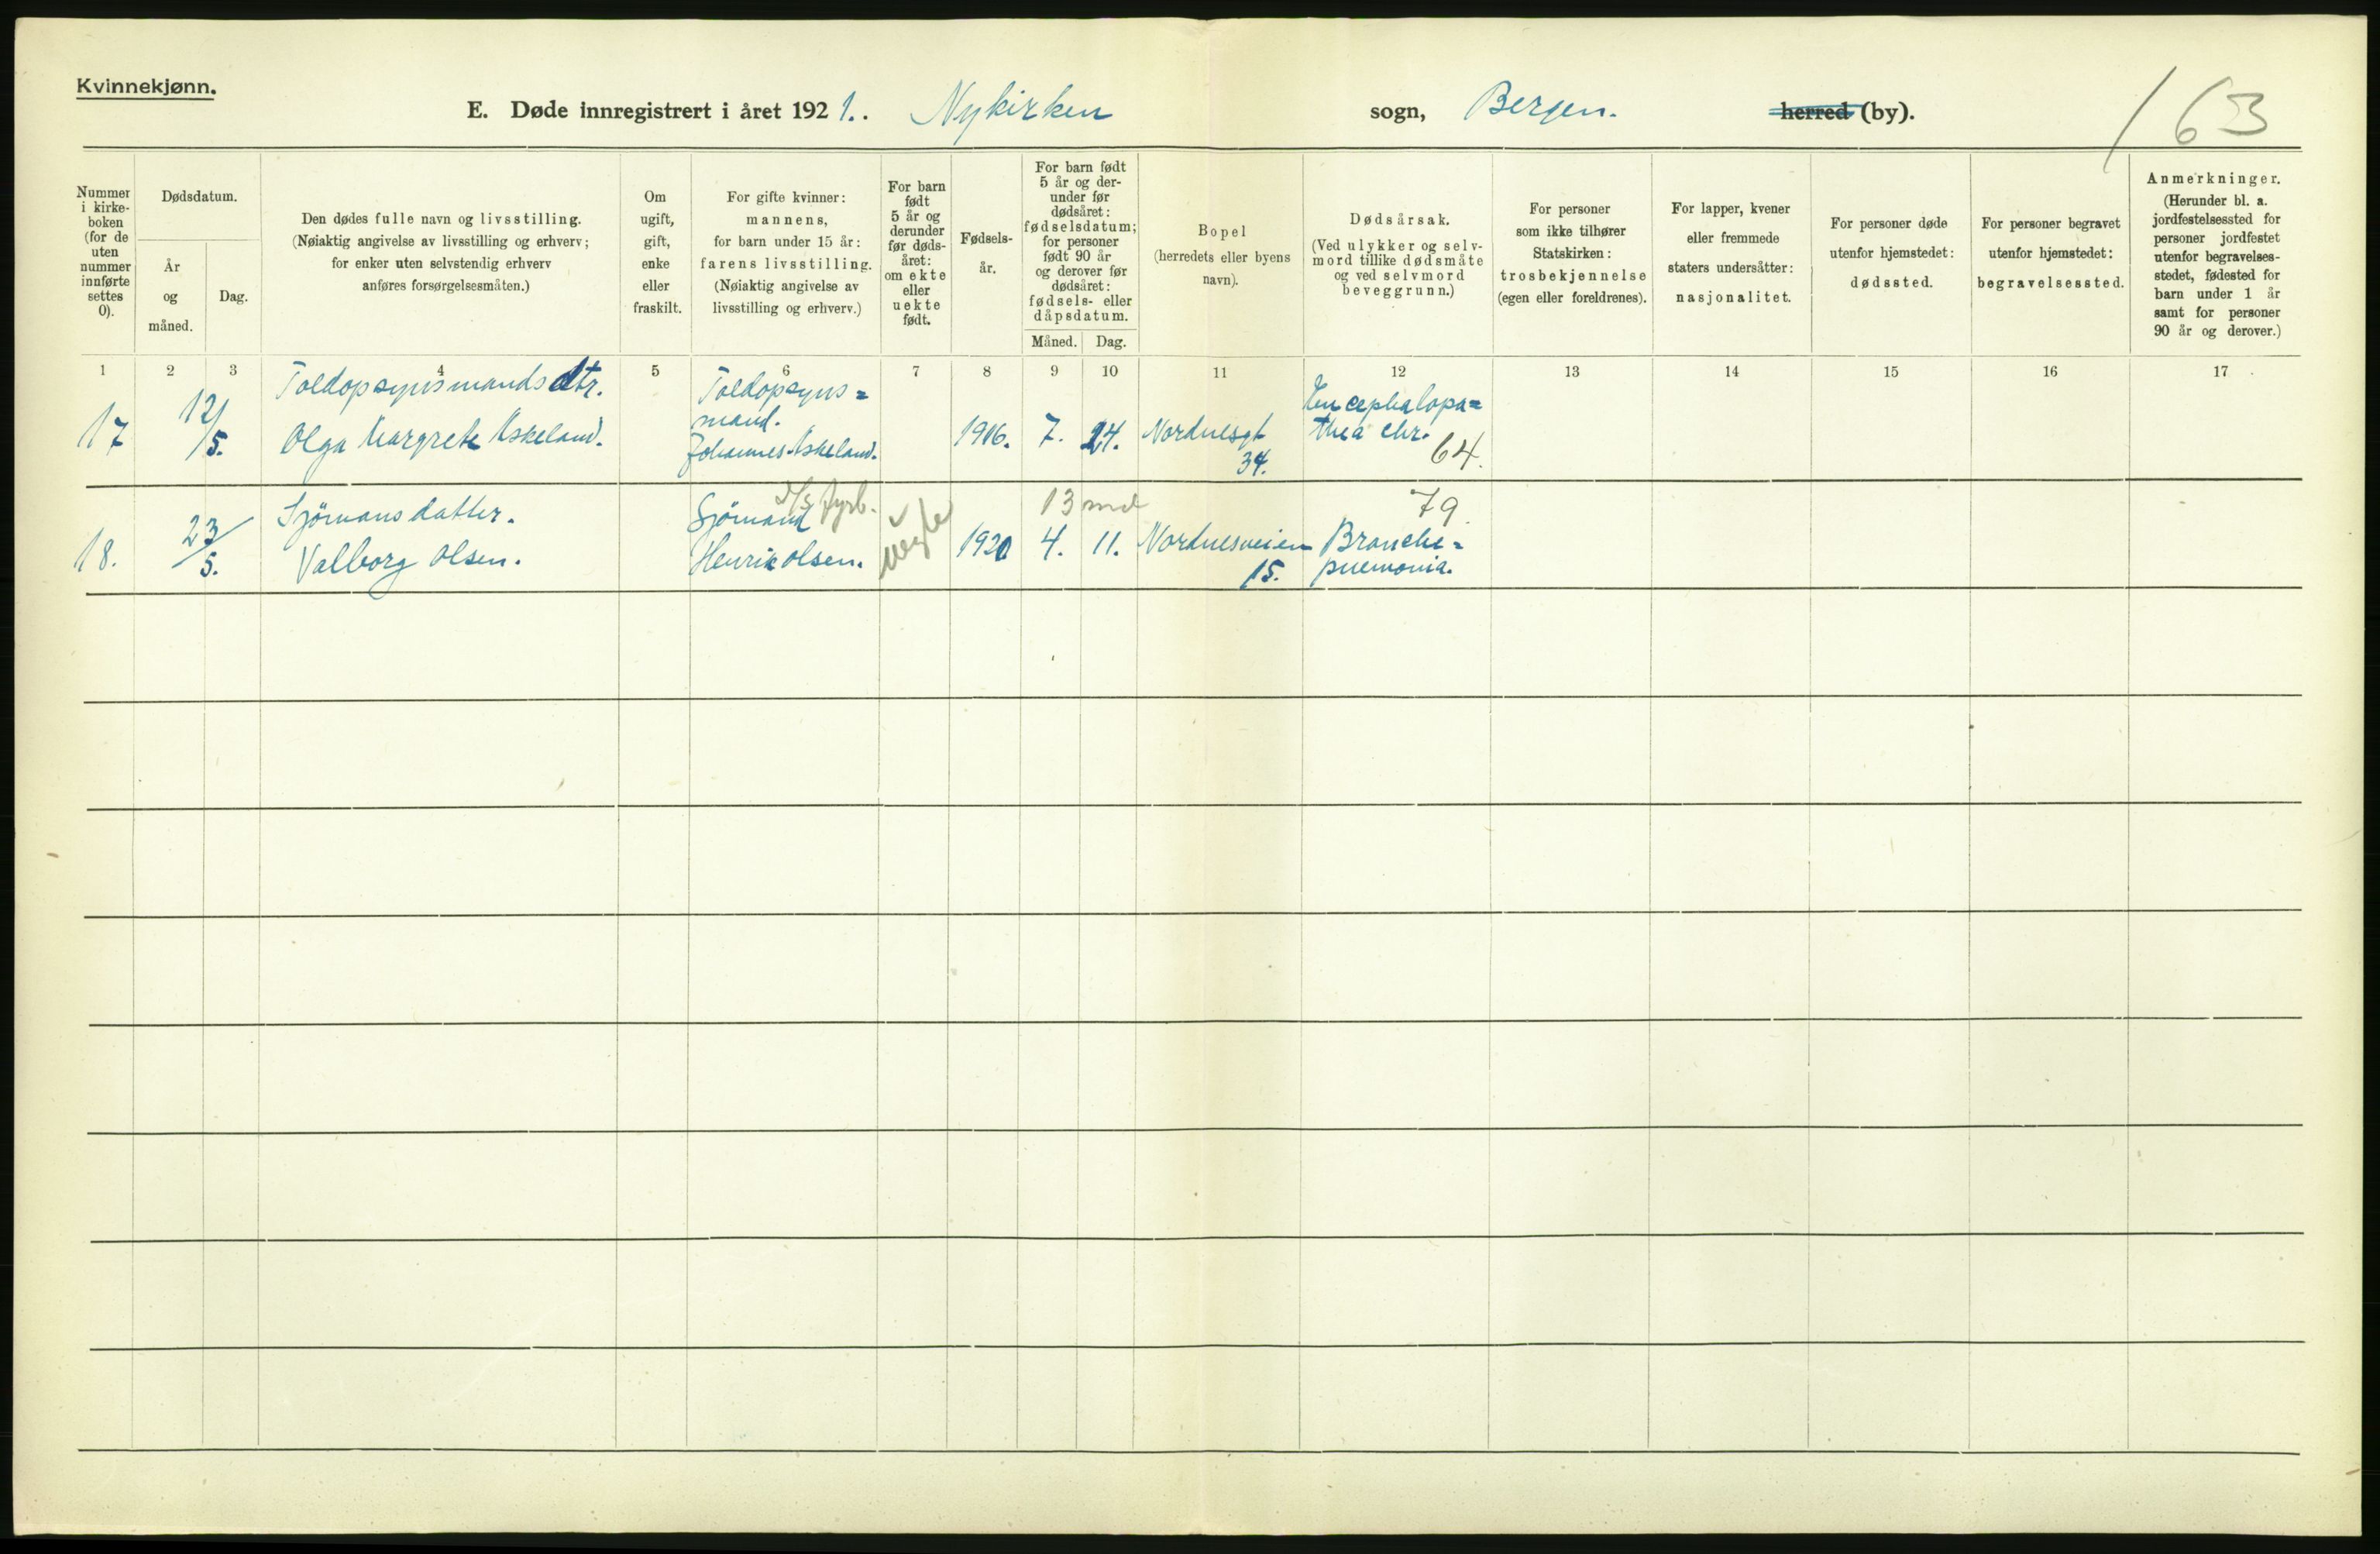 Kvinnekjønn.
E. Døde innregistrert i året 1921. . Nykirken sogn, Bergen. herred (by).
163
Nummer i kirke- boken (for de uten nummer innførte settes 0).
Dødsdatum.
År og måned.
Dag.
Den dødes fulle navn og livsstilling.
(Nøiaktig angivelse av livsstilling og erhverv;
for enker uten selvstendig erhverv
anføres forsørgelsesmåten.)
Om ugift, gift, enke eller fraskilt.
For gifte kvinner:
mannens,
for barn under 15 år:
farens livsstilling.
(Nøiaktig angivelse av
livsstilling og erhverv.)
For barn født 5 år og derunder før døds- året: om ekte eller uekte født.
Fødsels- år.
For barn født 5 år og der- under før dødsåret: fødselsdatum; for personer født 90 år og derover før dødsåret: fødsels- eller dåpsdatum.
Måned. Dag.
Bopel
(herredets eller byens
navn).
Dødsårsak.
(Ved ulykker og selv-
mord tillike dødsmåte
og ved selvmord
beveggrunn.)
For personer
som ikke tilhører
Statskirken:
trosbekjennelse
(egen eller foreldrenes).
For lapper, kvener
eller fremmede
staters undersåtter:
nasjonalitet.
For personer døde
utenfor hjemstedet:
dødssted.
For personer begravet
utenfor hjemstedet:
begravelsessted.
Anmerkninger.
(Herunder bl. a.
jordfestelsessted for
personer jordfestet
utenfor begravelses-
stedet, fødested for
barn under 1 år
samt for personer
90 år og derover.)
1 2 3 4 5 6 7 8 9 10 11 12 13 14 15 16 17
17 12/5. Toldopsynsmandsdtr.
Olga Margrete Askeland.
Toldopsyns=
mand.
Johannes Askeland.
1916. 7. 24. Nordnesgt
34.
Encephalopa=
thea chr.
64.
18. 23/5. Sjömansdatter.
Valborg Olsen.
Sjömand
fyrb.
Henrik Olsen.
uegte
1920 4. 11.
13 md
Nordnesveien
15.
79.
Bronche=
pnemonia.